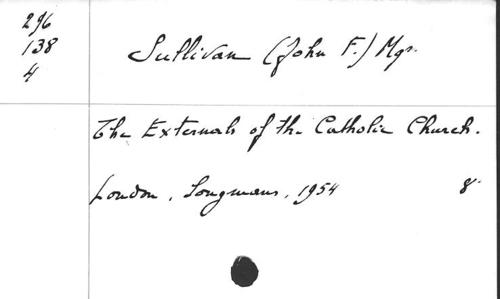 296
138
4
Sullivan (John F.) Mgr.
The Externals of the Catholic Church.
London, Longmans, 1954 8°